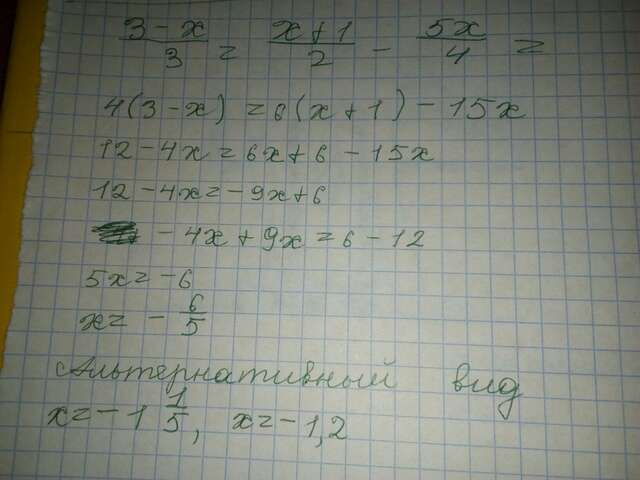 3-x/3 = x+1/2 - 5x/4 =
4(3-x) = 6(x+1) - 15x
12-4x=6x+6-15x
12-4x=-9x+6
-4x+9x=6-12
5x=-6
x=-6/5
Альтернативный вид
x=-1 1/5, x=-1,2